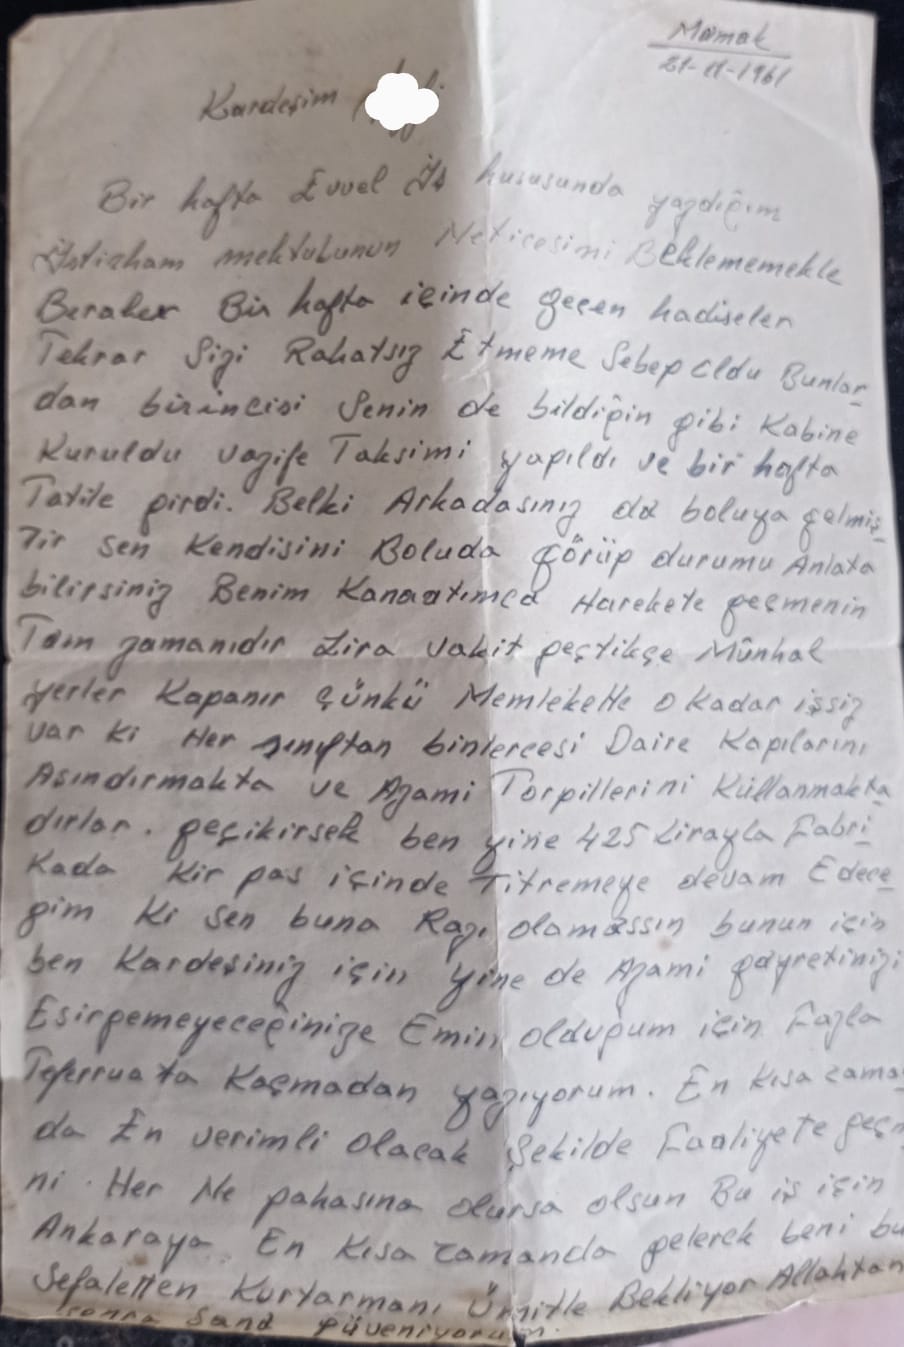 Mamak
21-11-1961
Kardeşim
Bir hafta Evvel İş hususunda yazdığım
İstirham mektubunun Neticesini Beklememekle
Beraber Bir hafta içinde geçen hadiseler
Tekrar Sizi Rahatsız Etmeme Sebep oldu Bunlar
dan birincisi Senin de bildiğin gibi Kabine
Kuruldu vazife Taksimi yapıldı ve bir hafta
Tatile girdi. Belki Arkadasınız da boluya gelmiş
Tir Sen Kendisini Boluda görüp durumu Anlata
bilirsiniz Benim Kanaatımca Harekete geçmenin
Tam zamanıdır Zira vakit geçtikçe Münhal
yerler Kapanır Çünkü Memlekette o kadar işsiz
var ki Her sınıftan binlercesi Daire Kapılarını
Asındırmakta ve Azami Torpillerini Kullanmakta
dırlar. geçikirsek ben yine 425 Lirayla Fabri
Kada Kir pas içinde Titremeye devam Edece
ğim Ki Sen buna Razı olamassın bunun için
ben Kardeşiniz için yine de Azami gayretinizi
Esirgemeyeceğinize Emin olduğum için Fazla
Teferruata Kaçmadan yazıyorum. En Kısa zama
da En verimli olacak Şekilde Faaliyete geçm
ni. Her Ne pahasına olursa olsun Bu iş için
Ankaraya En Kısa zamanda gelerek beni bu
Sefaletten Kurtarmanı Ümitle Bekliyor Allahtan
sonra Sana güveniyorum.